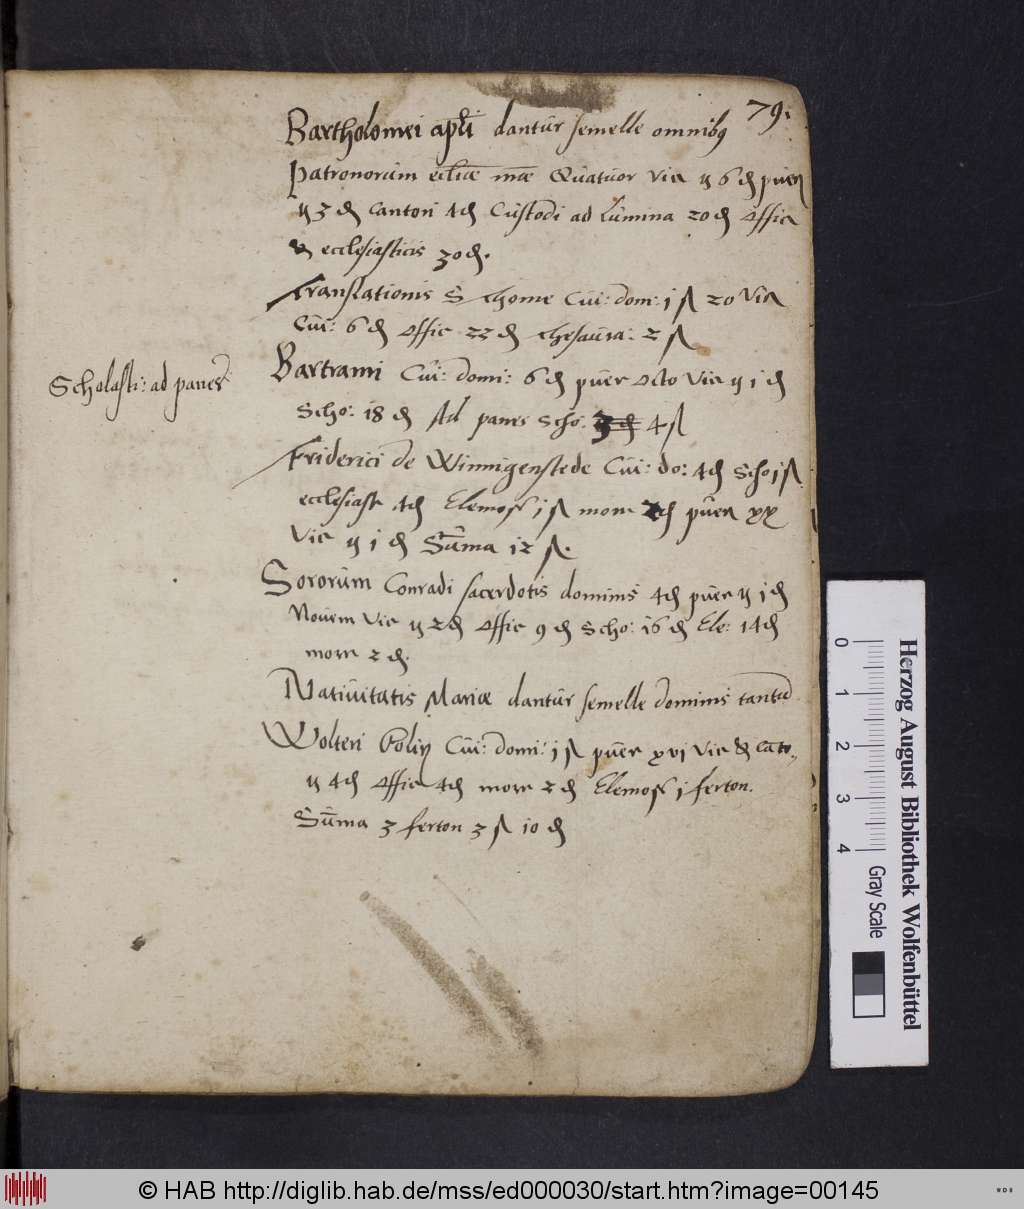 79.
Bartholomei apli dantur semelle omnibus
Patronorum eccliae mae Quatuor vic ij 6 d puer
ij 3 d Cantori 4 d Custodi ad lumina 20 d offic
& ecclesiasticis 30 d.
Translationis S Thome Cui: dom: i ß 20 vic
Cui: 6 d offic 22 d thesaura: 2 ß
Scholasti: ad panes
Bartrami Cui: domi: 6 d puer octo vic ij i d
Scho: 18 d Ad panes Scho: 4 ß
Friderici de Winnigenstede Cui: do: 4 d Scho i ß
ecclesiast 4 d Elemos i ß morr d puer xx
vic ij i d Summa 12 ß.
Sororum Conradi sacerdotis dominis 4 d puer ij i d
Novem vic ij 2 d offic 9 d Scho: 16 d Ele: 14 d
morr 2 d.
Nativitatis Mariae dantur semelle dominis tantum
Wolteri Cui: domi: i ß puer xvi vic & Canto
ij 4 d offic 4 d morr 2 d Elemos i ferton.
Summa 3 ferton 3 ß 10 d
Herzog August Bibliothek Wolfenbüttel
0 1 2 3 4 Gray Scale
© HAB http://diglib.hab.de/mss/ed000030/start.htm?image=00145